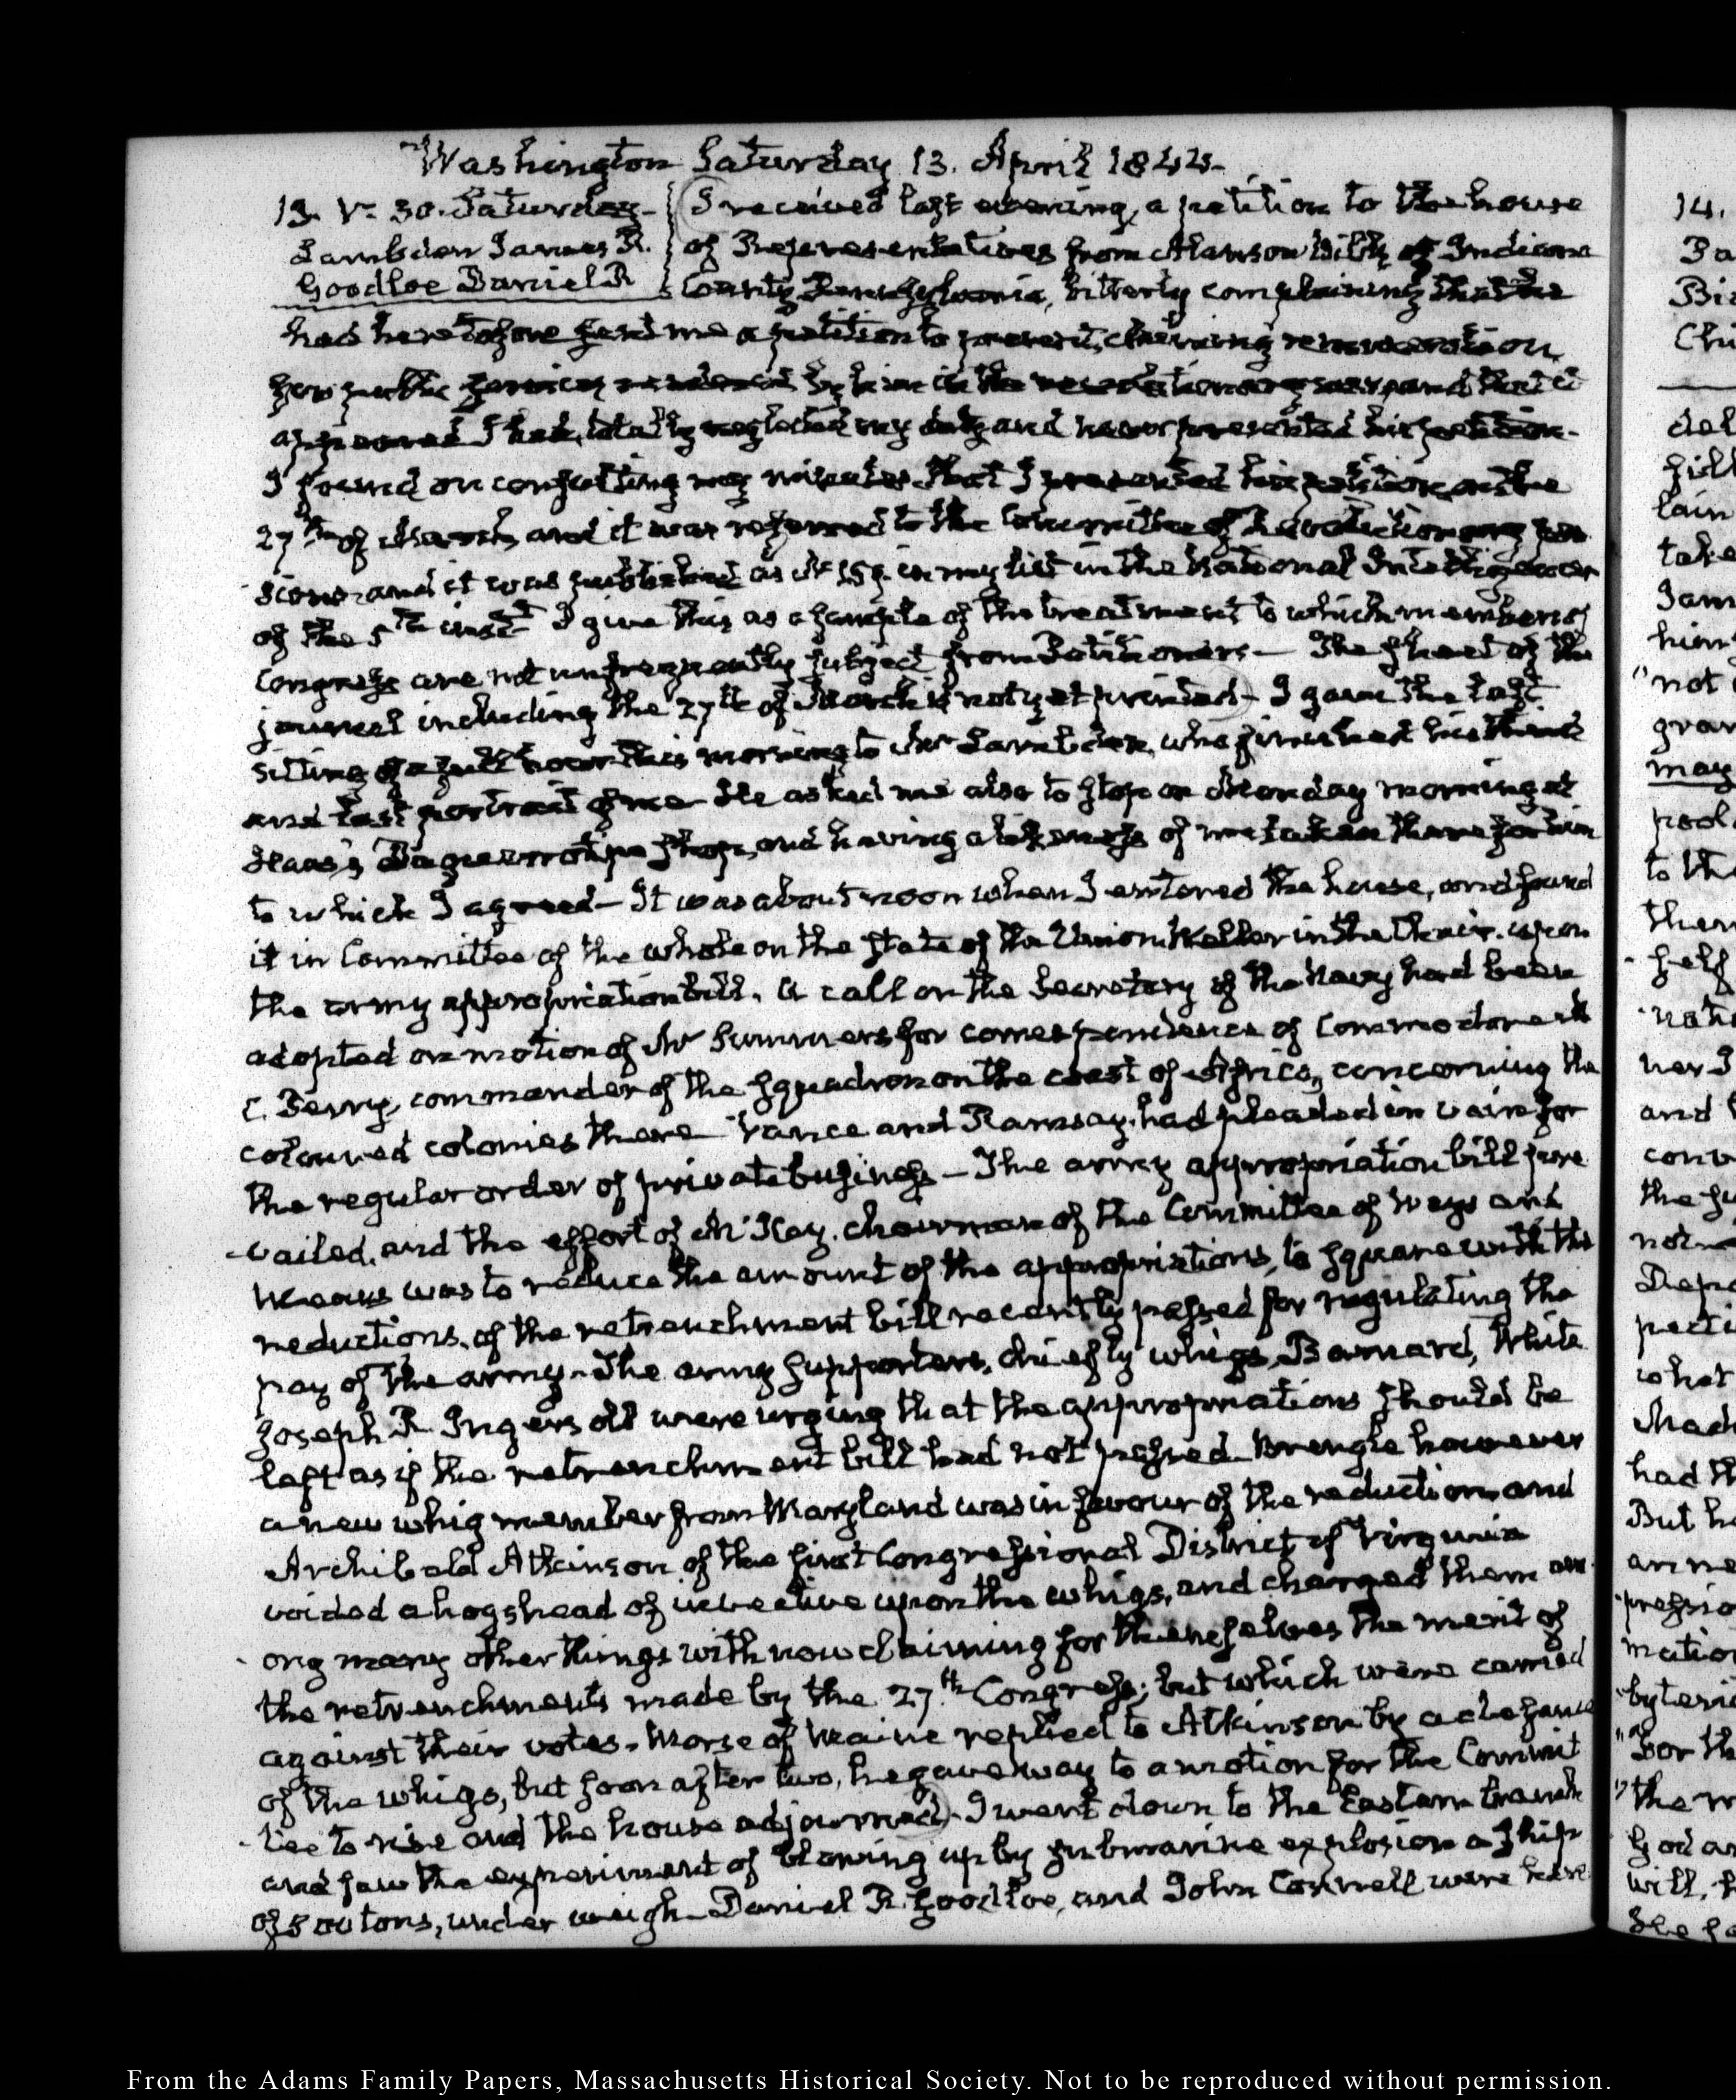 Washington Saturday 13. April 1844.
13. V. 30. Saturday
Lambden James R.
Goodloe Daniel R
I received last evening, a petition to the house
of Representatives from Alanson Bilby of Indiana
County Pennsylvania, bitterly complaining that he
had heretofore sent me a petition to present, claiming remuneration
for public services rendered by him in the revolutionary war, and that it
appeared I had totally neglected my duty and never presented his petition.
I found on consulting my minutes that I presented his petition on the
27th of March, and it was referred to the Committee of Revolutionary pen
sions and it was published as No 159. in my list in the National Intelligencer
of the 5th inst. I give this as a sample of the treatment to which members of
Congress are not unfrequently subject from Petitioners — The sheet of the
journal including the 27th of March is not yet printed — I gave the last
sitting of a full hour this morning to Mr Lambden, who finished his third
and last portrait of me. He asked me also to stop on Monday morning at
Haas's Daguerrotype shop, and having a likeness of me taken there for him
to which I agreed — It was about noon when I entered the house, and found
it in Committee of the whole on the state of the Union. Weller in the Chair. upon
the army appropriation bill. A call on the Secretary of the Navy had been
adopted on motion of Mr Summers for correspondence of Commodore M
C. Perry, commander of the squadron on the coast of Africa, concerning the
coloured colonies there — Vance and Ramsay had pleaded in vain for
the regular order of private business — The army appropriation bill pre
vailed, and the effort of McKay, chairman of the Committee of Ways and
Means was to reduce the amount of the appropriations, to square with the
reductions, of the retrenchment bill recently passed for regulating the
pay of the army. The army supporters, chiefly whigs, Barnard, White
Joseph R Ingersoll were urging that the appropriations should be
left as if the retrenchment bill had not passed — Brengle however
a new whig member from Maryland was in favour of the reduction, and
Archibald Atkinson of the first Congressional District of Virginia
voided a hogshead of invective upon the whigs, and charged them am
ong many other things with now claiming for themselves the merit of
the retrenchments made by the 27th Congress; but which were carried
against their votes. Morse of Maine replied to Atkinson by a defence
of the whigs, but soon after two, he gave way to a motion for the Commit
tee to rise and the house adjourned — I went down to the Eastern branch
and saw the experiment of blowing up by submarine explosion a ship
of 500 tons, under weigh — Daniel R. Goodloe, and John Connell were here
From the Adams Family Papers, Massachusetts Historical Society. Not to be reproduced without permission.